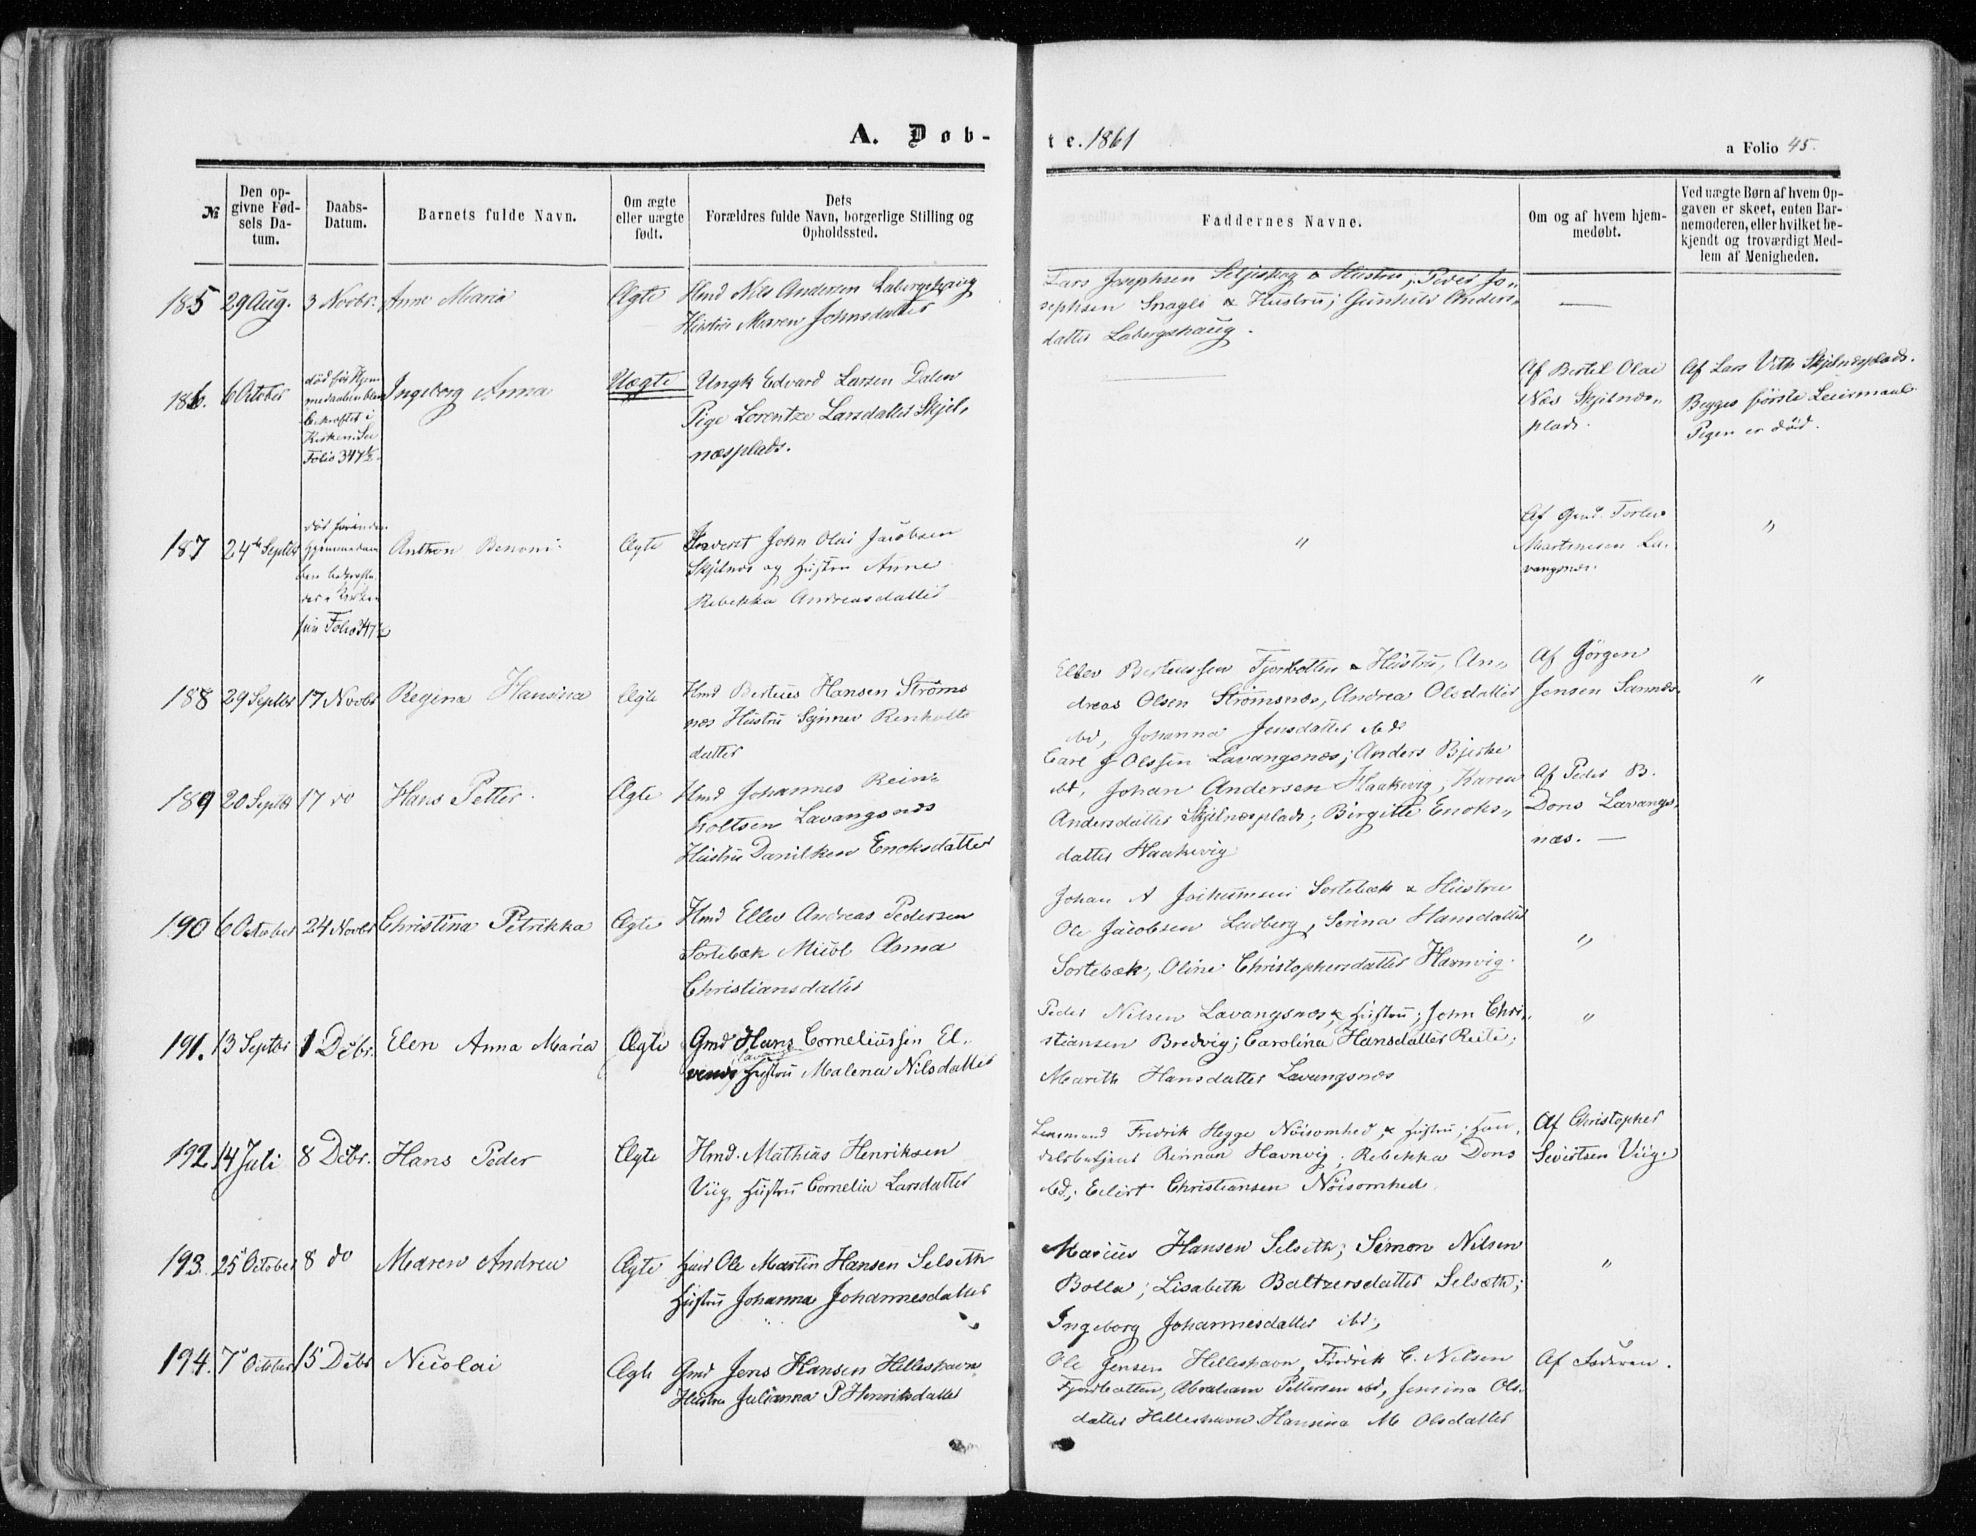 A. Døb-
te. 1861
a Folio 45.
№
Den op-
givne Fød-
sels Da-
tum.
Daabs-
Datum.
Barnets fulde Navn.
Om ægte
eller uægte
født.
Dets
Forældres fulde Navn, borgerlige Stilling og
Opholdssted.
Faddernes Navne.
Om og af hvem hjem-
medøbt.
Ved uægte Børn af hvem Op-
gaven er skeet, enten Bar-
nemoderen, eller hvilket be-
kjendt og troværdigt Med-
lem af Menigheden.
185 29 Aug. 3 Novbr. Anne Maria Ægte
Hmd Nils Andersen Labergshaug
Hustru Maren Johnsdatter
Lars Josephsen Seljeskog & Hustru; Peder Jo-
sephsen & Hustru; Gunhild Anders-
datter Labergshaug.
—
186. 6 October
død før Hjem
medaaben blev
bekræftet i
Kirken. See
Folio 347
Ingeborg Anna
Uægte
Ungk Edvard Larsen Dalen
Pige Lorentze Larsdatter Skjel-
næsplads.
Af Bertel Olai
Nos Skjelnæs-
plads.
Af Lars Skjelnæsplads.
Begges første Leiermaal
Pigen er død.
187 24de Septbr
død
hjemmedaa
ben bekræfte
des i Kirken
Folio 347
Anthon Benoni
Ægte
John Olai Jacobsen
Skjelnæs og Hustru Anne
Rebekka Andreasdatter
"
Af Gmd.
Martinesen La-
vangsnæs.
"
188 29 Septbr 17 Novbr Regina Hansina Ægte
Hmd Berteus Hansen Strøms
næs Hustru Synnev Renholts
datter
Ellev Berteussen Fjordbotten & Hustru, An-
dreas Olsen Strømsnæs, Andrea Olsdatter
ibd, Johanna Jensdatter ibd
Af Jørgen
Jensen Sannæs.
"
189 20 Septbr 17 do Hans Petter. Ægte
Hmd Johannes Rein-
holtsen Lavangsnæs
Hustru Danilken Enoksdatter
Carl J Olssen Lavangsnæs; Anders Bjerke
ibd, Johan Andersen Haakvig; Karen
Andersdatter Skjelnæsplads; Birgitte Enoks-
datter Haakvig
Af Peder B.
Dons Lavangs-
næs. —
190 6 October 24 Novbr Christina Petrikka Ægte
Hmd Ellev Andreas Pedersen
Sortebæk Micol Anna
Christiansdatter
Johan A Jochumsen Sortebæk & Hustru
Ole Jacobsen Ladberg, Serina Hansdatter
Sortebæk, Oline Christophersdatter Havnvig.
"
191. 13 Septbr 1 Decbr. Elen Anna Maria Ægte
Gmd Hans Corneliussen El-
Hustru Malena Nilsdatter
Peder Nilsen Lavangsnæs & Hustru; John Chri-
stiansen Bredvig; Carolina Hansdatter Reite;
Marith Hansdatter Lavangsnæs
"
192 14 Juli 8 Decbr. Hans Peder Ægte
Hmd. Mathias Henriksen
Viig Hustru Cornelia Larsdatter
Lensmand Fredrik Hegge Nöisomhed & Hustru; Han-
delsbetjent Rinnan Havnvig; Rebekka Dons
ibd; Eilert Christiansen Nöisomhed
Af Christopher
Sivertsen Viig.
193. 25 October 8 do Maren Andrea Ægte
Ole Martin Hansen Selseth
Hustru Johanna Johannesdatter
Marius Hansen Selseth; Simon Nilsen
Bolla; Lisabeth Baltzersdatter Selseth;
Ingeborg Johannesdatter ibd,
"
194. 7 October 15 Decbr Nicolai Ægte
Gmd Jens Hansen Hilleshavn
Hustru Julianna P Henriksdatter
Ole Jensen Hilleshavn, Fredrik C. Nilsen
Fjordbotten, Abraham Pettersen ibd, Jensina Ols-
datter Hilleshavn Hansina M Olsdatter
Af Faderen.